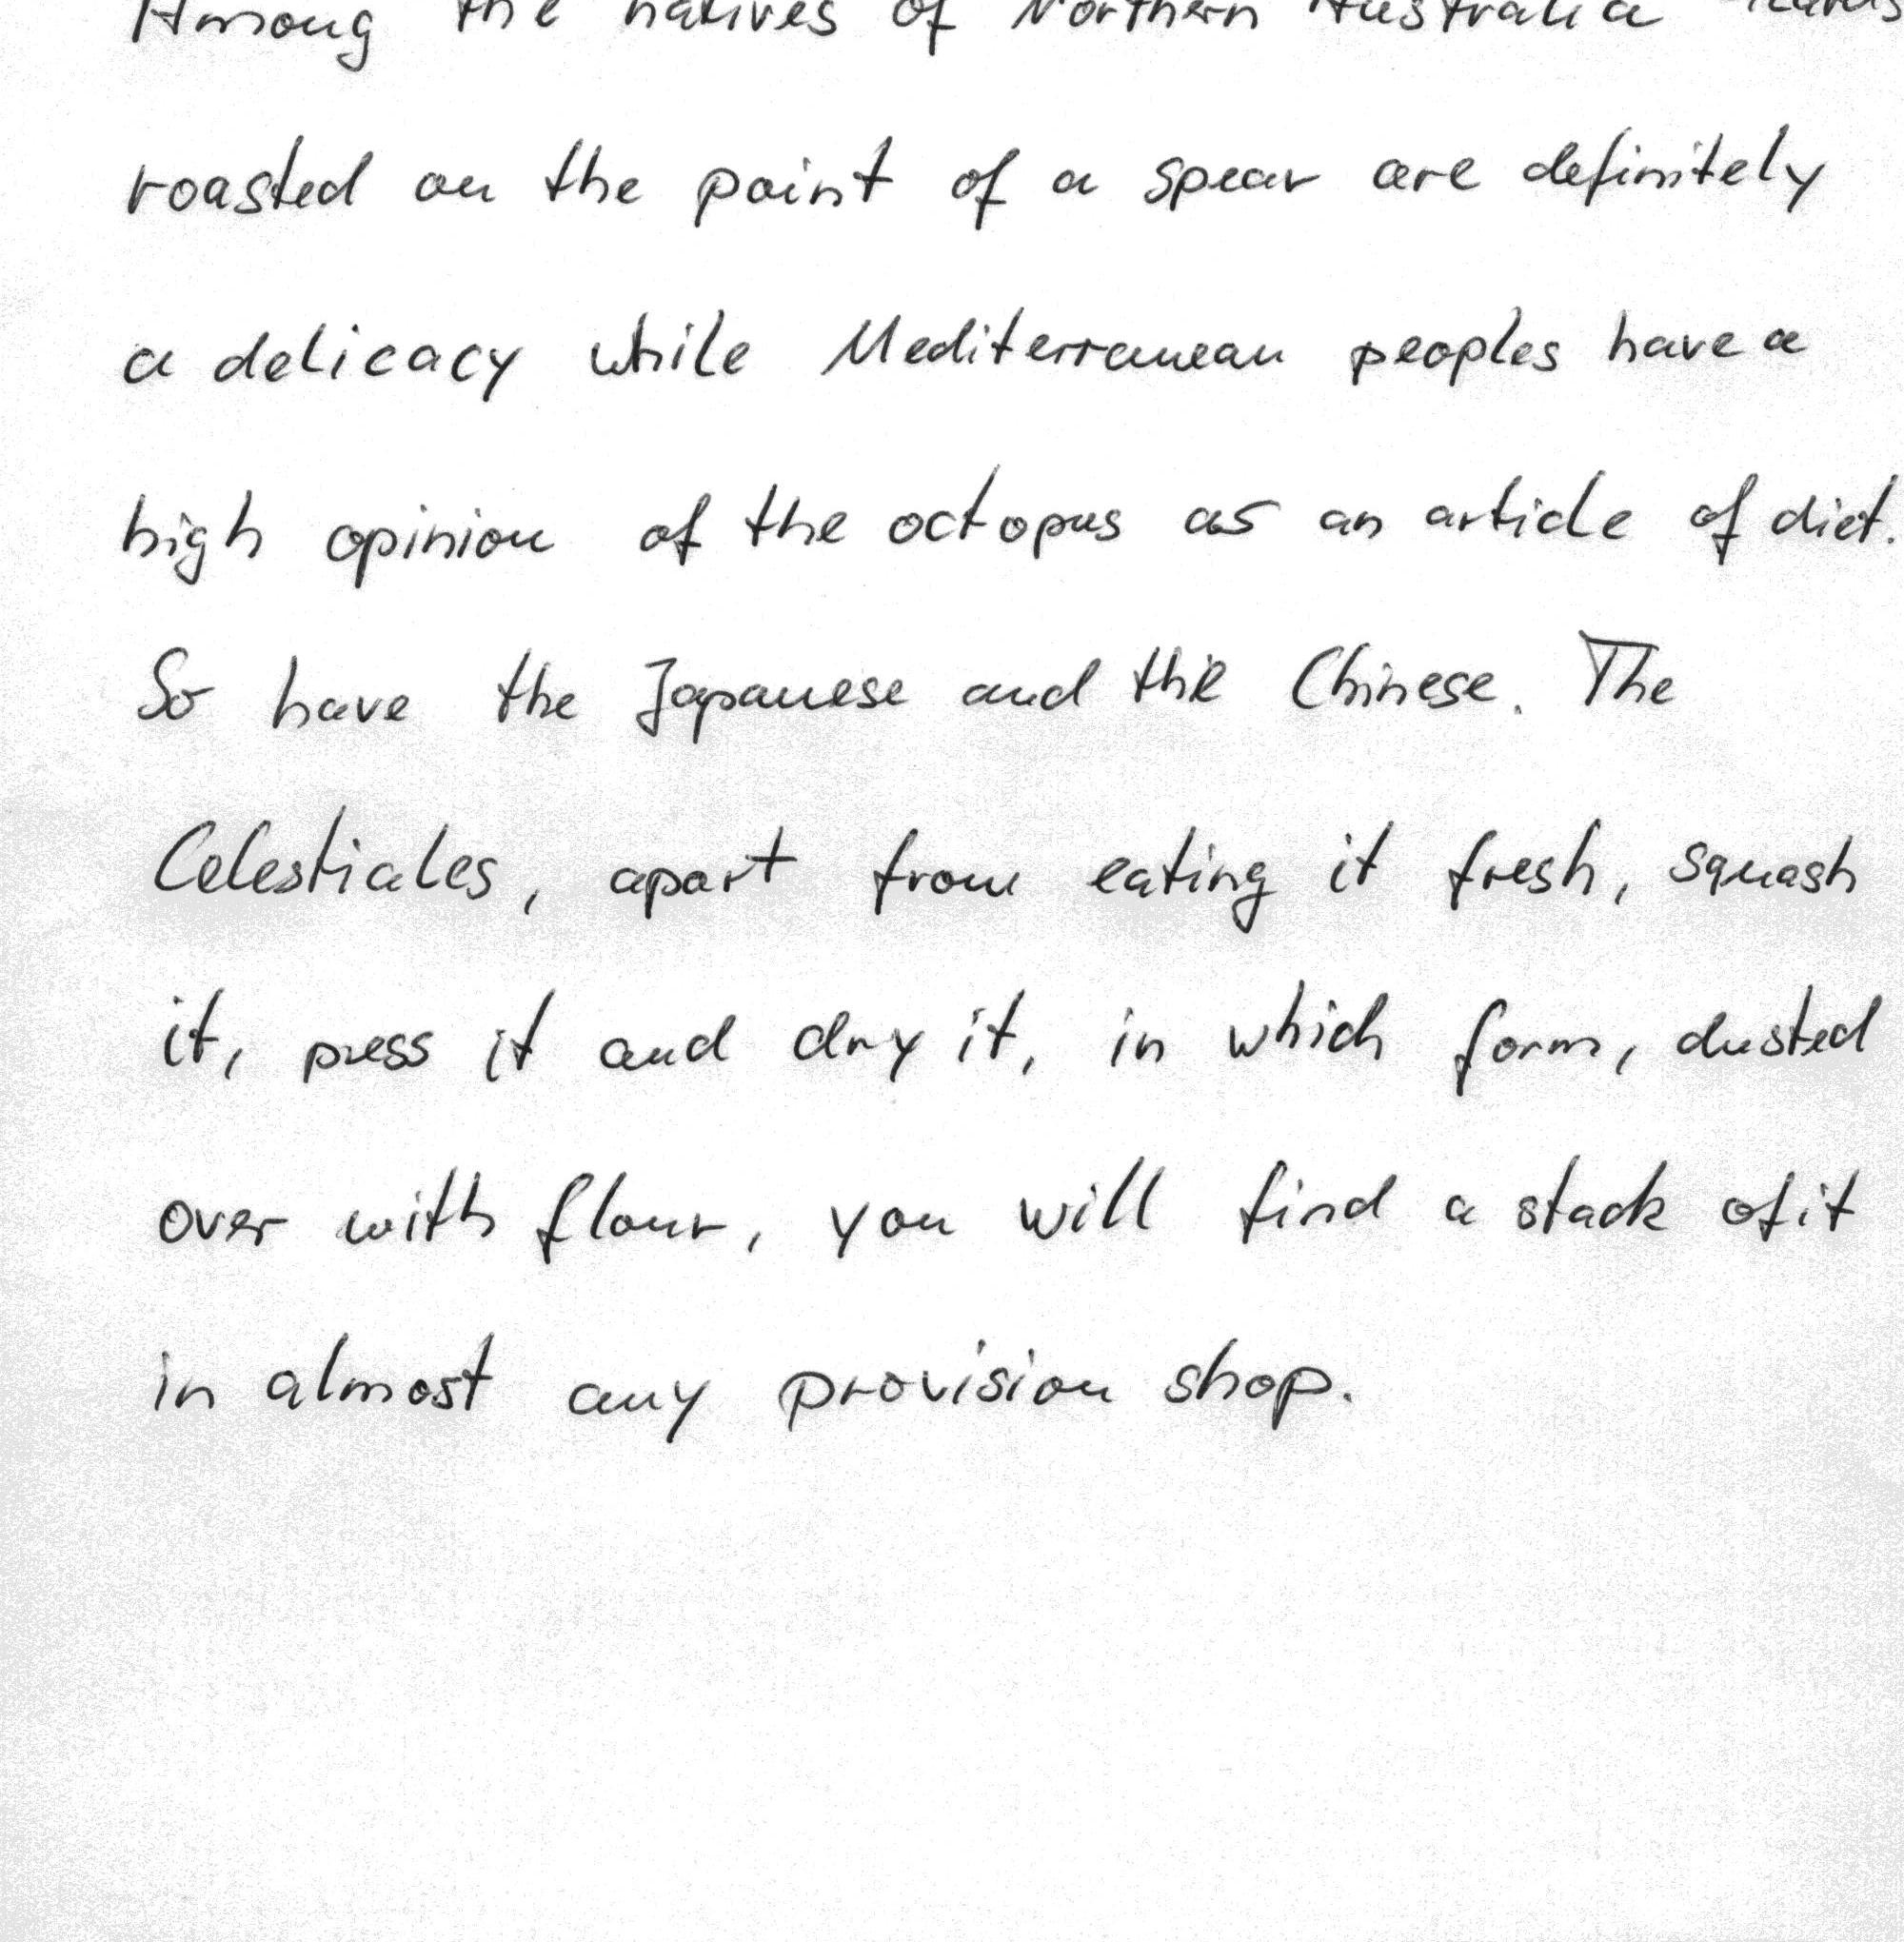 Among the natives of Northern Australia
roasted on the point of a spear are definitely
a delicacy while Mediterranean peoples have a
high opinion of the octopus as an article of diet.
So have the Japanese and the Chinese. The
Celestiales, apart from eating it fresh, squash
it, press it and dry it, in which form, dusted
over with flour, you will find a stack of it
in almost any provision shop.